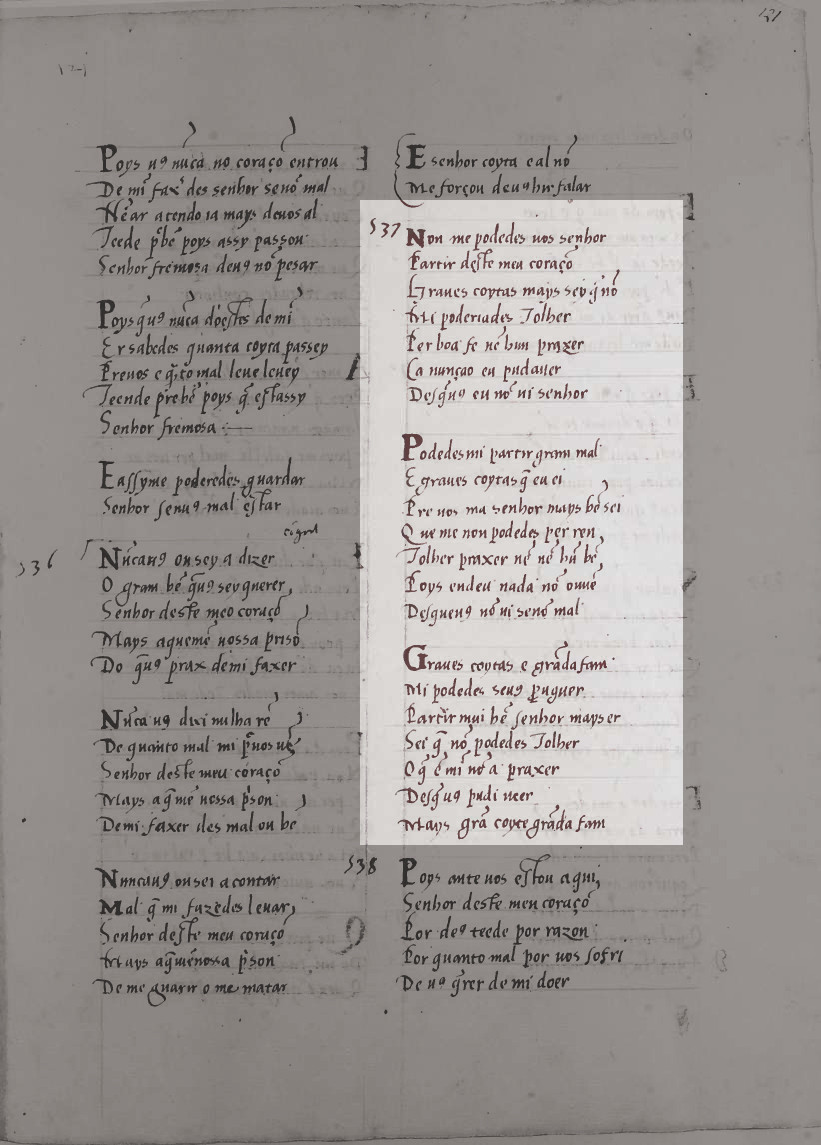 131
Poys uꝯ nũca no coraçõ entrou
De mi faxʼ des senhor senõ mal
Nẽ ar atendo ia mays deuos al
Teede pʼ bẽ poys assy passou
Senhor fremosa deuꝯ nõ pesar
Poys q̃ uꝯ nũca doestes de mi
Er sabedes quanta coyta passey
Por uos e q̃ mal leue leuey
Teende pʼ bẽ poys q̃ estassy
Senhor fremosa
E assy me poderedes guardar
Senhor senuꝯ mal estar
536
Nũcauꝯ ousey a dizer
O gram bẽ q̃uꝯ sey querer
Senhor deste meo coraçõ
Mays aqueme uossa pʼisõ
Do q̃uꝯ prax demi faxer
Nũca uꝯ dixi nulha rẽ
De quanto mal mi pʼ uos uẽ
Senhor deste meu coraçõ
Mays aq̃mẽ uossa pʼson
Demi faxer des mal ou bẽ
Nuncauꝯ ousei a contar
Mal q̃ mi fazedes leuar
Senhor deste meu coraçõ
Mays aq̃mẽ uossa pʼson
De me guarir o me matar
E senhor coyta e al nõ
Me forçou deuꝯ hir falar
537
Non me podedes uos senhor
Partir deste meu coraçõ
Graues coytas mays sey q̃ nõ
Mi poderiades Tolher
Per boa fe nẽ hun praxer
Ca nunca o eu pud auer
Desq̃uꝯ eu nõ ui senhor
Podedes mi partir gram mal
E graues coytas q̃ eu ei
Per uos ma senhor mays bẽ sei
Que me non podedes per ren
Tolher praxer nẽ nẽ hũ bẽ
Poys endeu nada nõ ouuẽ
Desqueuꝯ nõ ui senõ mal
Graues coytas e grãdafam
Mi podedes seuꝯ p̃uguer
Partir mui bẽ senhor mays er
Sei q̃ nõ podedes Tolher
O q̃ ẽ mi nõ a praxer
Desq̃uꝯ pudi ueer
Mays grã coyte grãdafam
538
Poys ante uos estou aqui
Senhor deste meu coraçõ
Por deꝯ teede por razon
Por quanto mal por uos sofri
De uꝯ q̃rer de mi doer